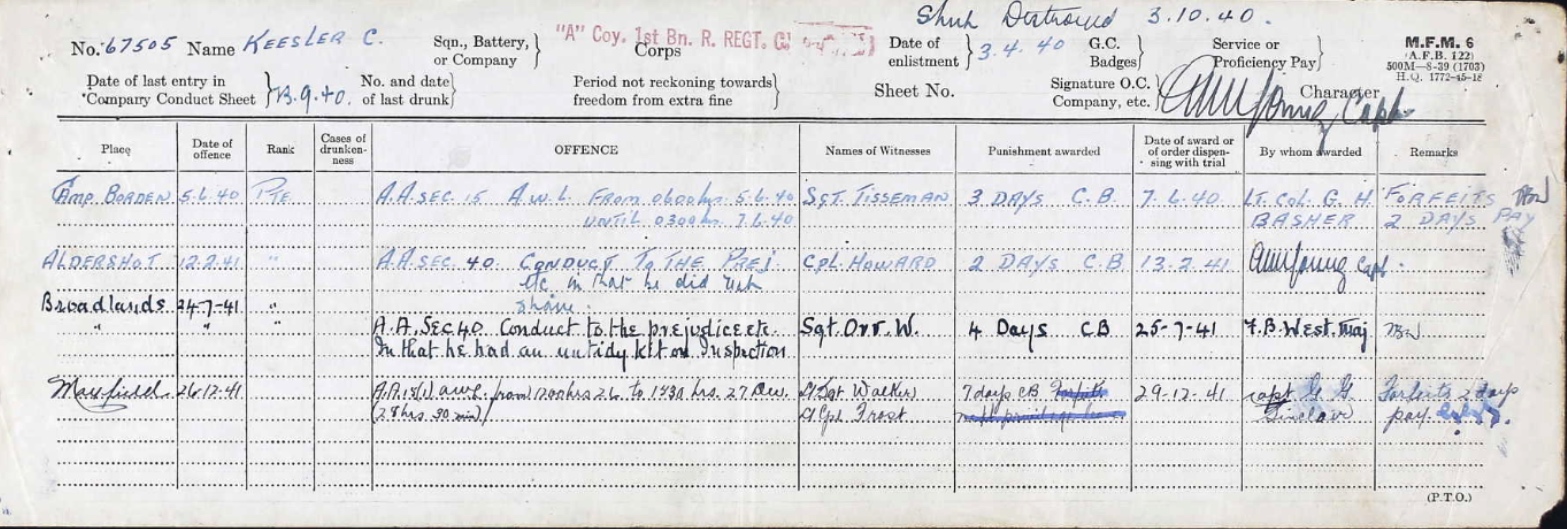 Sheet Destroyed 3.10.40.
No. 67505 Name KEESLER C. Sqn., Battery, or Company "A" Coy. 1st Bn. R. REGT. C. Corps Date of enlistment 3.4.40 G.C. Badges Service or Proficiency Pay M.F.M. 6
(A.F.B. 122)
500M—8-39 (1703)
H.Q. 1772-45-18
Date of last entry in Company Conduct Sheet 13.9.40. No. and date of last drunk Period not reckoning towards freedom from extra fine Sheet No. Signature O.C. Company, etc. Capt. Character
Place Date of offence Rank Cases of drunken-ness OFFENCE Names of Witnesses Punishment awarded Date of award or of order dispen-sing with trial By whom awarded Remarks
CAMP BORDEN 5.6.40 PTE A.A. SEC. 15 A.W.L. FROM 0600hrs. 5.6.40 SGT. TISSEMAN 3 DAYS C.B. 7.6.40. LT. COL. G. H. FORFEITS
UNTIL 0300hr. 7.6.40 BASHER 2 DAYS PAY
ALDERSHOT 12.2.41 " A.A. SEC. 40. CONDUCT TO THE PREJ. CPL. HOWARD 2 DAYS C.B 13.2.41 Capt.
etc in that he did not
Broadlands 24-7-41 " shave.
" " " A.A. SEC 40 Conduct to the prejudice etc. Sgt. Orr. W. 4 Days CB 25-7-41 F.B. West. Maj
In that he had an untidy kit on Inspection
26-12-41 A.A. 15(1) awl from 1200hrs 26 to 1630 hrs. 27 Dec. L/Sgt Walker 7 days CB 29-12-41 capt G. G. Forfeits 2 days
(28 hrs 30 min) L/Cpl Frost Sinclair pay
(P.T.O.)